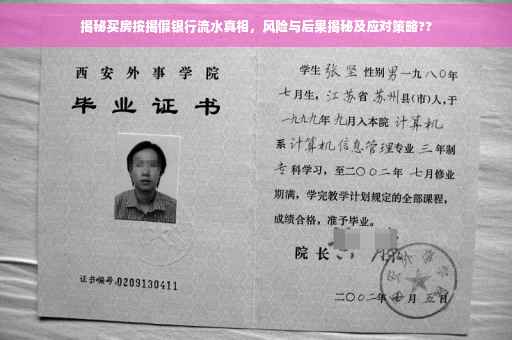 揭秘买房按揭假银行流水真相，风险与后果揭秘及应对策略??
西安外事学院
毕业证书
证书编号:0209130411
学生 张坚 性别 男 一九八〇年
七月生，江苏省 苏州 县(市)人,于
一九九九年 九月入本院 计算机
系 计算机信息管理 专业 三 年制
专 科学习，至二〇〇二年 七月修业
期满，学完教学计划规定的全部课程，
成绩合格，准予毕业。
院长
二〇〇二年 月 五日